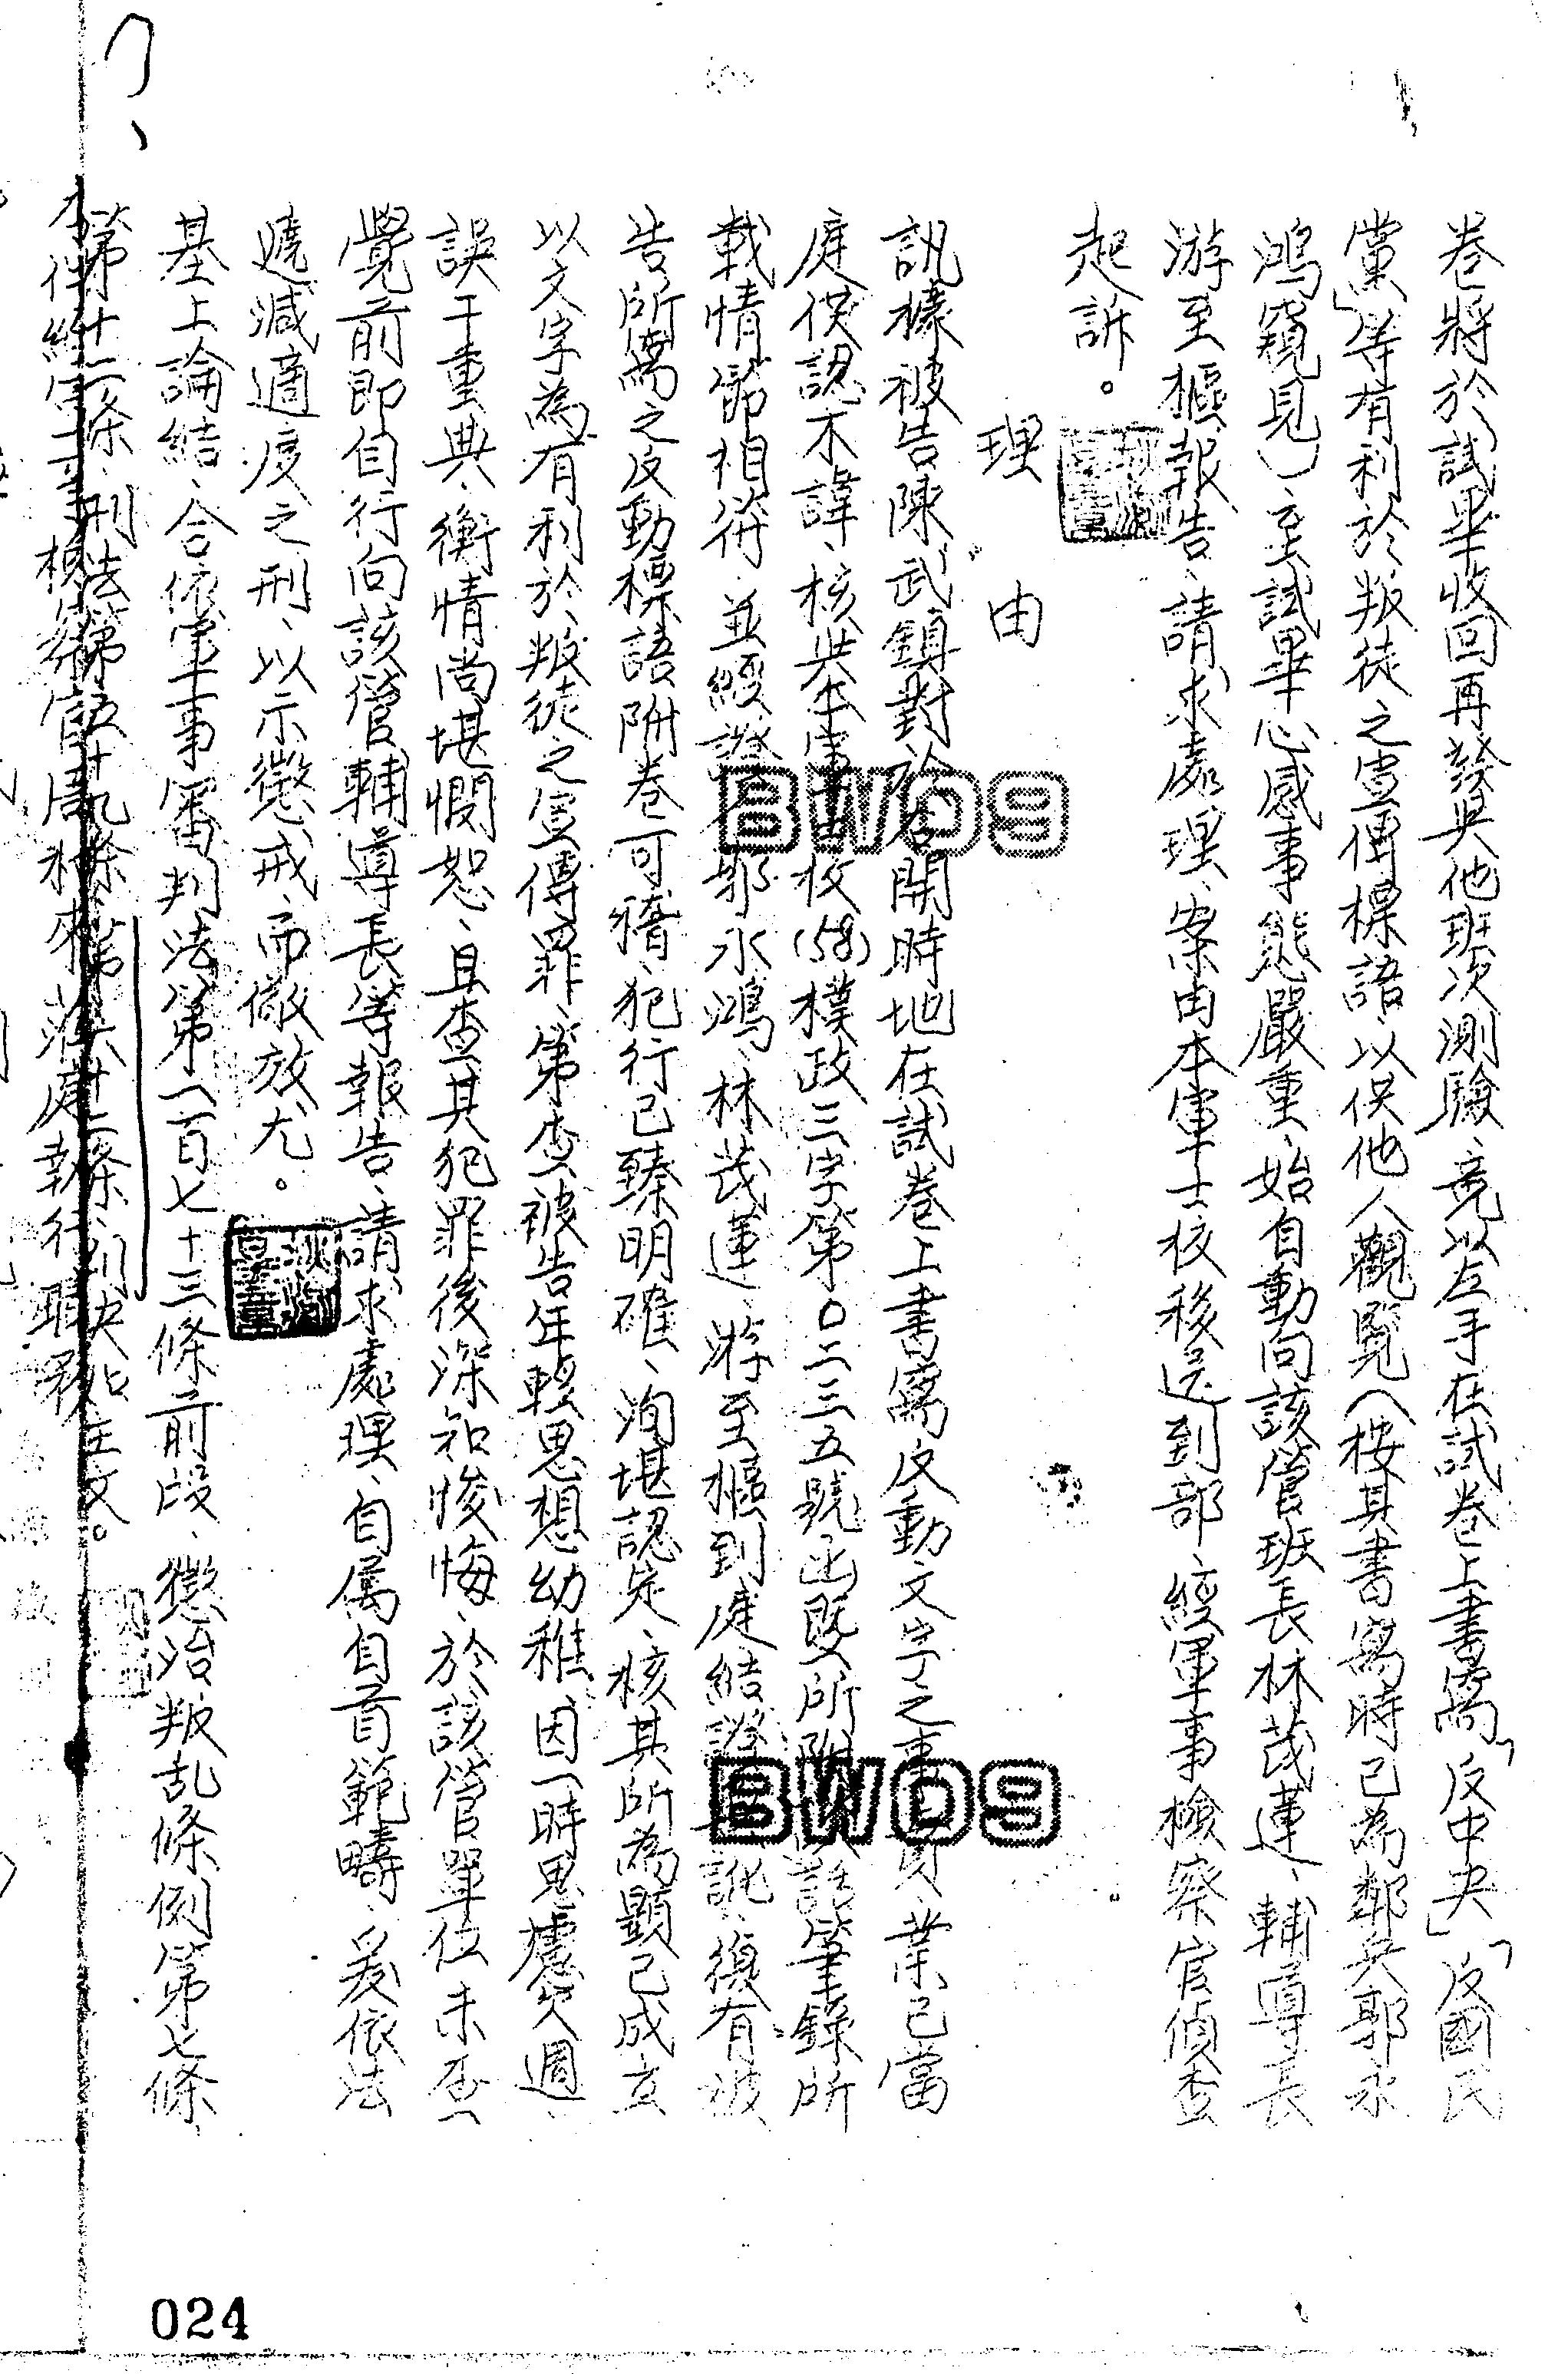 卷將於試畢收回再發與他班次測驗、竟以左手在試卷上書寫「反中央」「反國民
黨」等有利於叛徒之宣傳標語、以供他人觀覽(按其書寫時已為鄰兵郭永
鴻窺見)、至試畢心感事態嚴重、始自動向該管班長林茂蓮、輔導長
游至樞報告、請求處理、案由本軍士校移送到部、經軍事檢察官偵查
起訴。
理由
訊據被告陳武鎮對於右開時地在試卷上書寫反動文字之事實、業已當
庭供認不諱、核與本軍士校(58)樸政三字第0二三五號函暨所附談話筆錄所
載情節相符、並經證人郭永鴻、林茂蓮、游至樞到庭結證、復有被
告所寫之反動標語附卷可稽、犯行已臻明確、洵堪認定、核其所為顯已成立
以文字為有利於叛徒之宣傳罪、第查被告年輕思想幼稚、因一時思慮欠週、
誤干重典、衡情尚堪憫恕、且查其犯罪後深知悛悔、於該管單位未查
覺前即自行向該管輔導長等報告、請求處理、自屬自首範疇、爰依法
遞減適度之刑、以示懲戒、而儆放尤。
基上論結、合依軍事審判法第一百七十三條前段、懲治叛乱條例第七條、
第十二條、刑法第五十九條、第六十二條、判決如主文。
本件經軍事檢察官周 來蒞庭執行職務
BWO9
BWO9
024